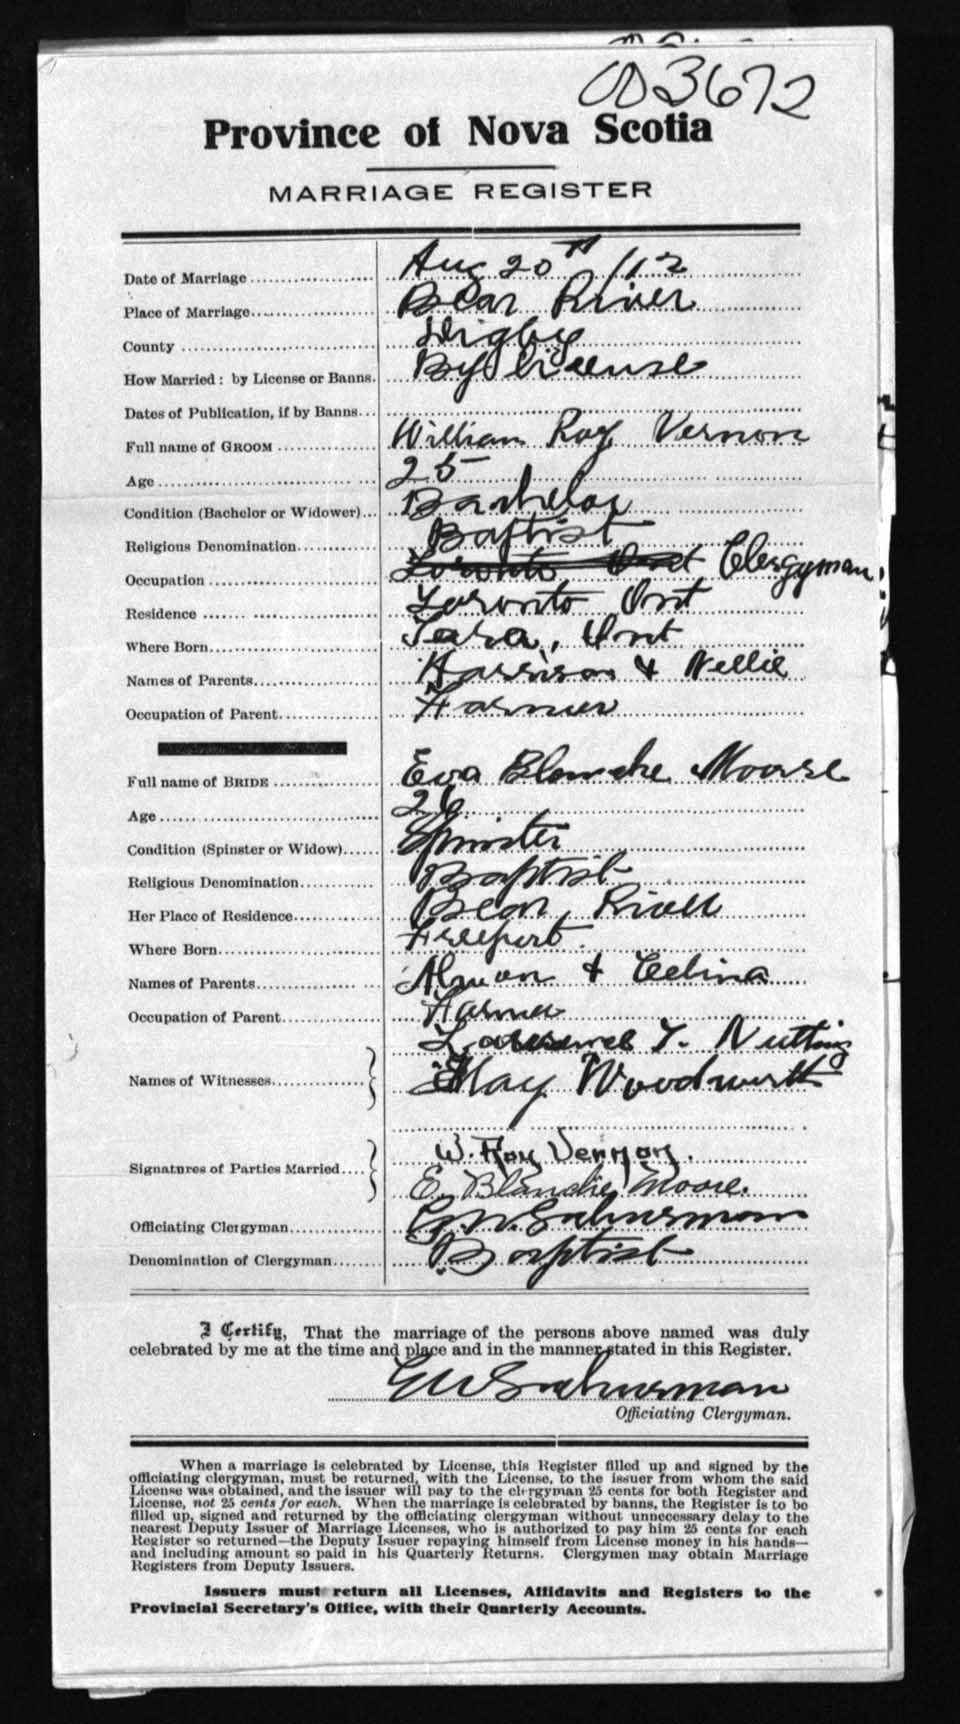 003672
Province of Nova Scotia
MARRIAGE REGISTER
Date of Marriage Aug 20th /12
Place of Marriage Bear River
County Digby
How Married: by License or Banns. By license
Dates of Publication, if by Banns
Full name of GROOM William Roy Vernon
Age 25
Condition (Bachelor or Widower) Bachelor
Religious Denomination Baptist
Occupation Toronto Ont Clergyman
Residence Toronto Ont
Where Born Tara, Ont
Names of Parents Harrison & Nellie
Occupation of Parent Farmer
Full name of BRIDE Eva Blanche Moore
Age 26
Condition (Spinster or Widow) Spinster
Religious Denomination Baptist
Her Place of Residence Bear River
Where Born Freeport.
Names of Parents Alman & Celina
Occupation of Parent Farmer
Lawrence T. Nutting
Names of Witnesses May Woodworth
W. Roy Vernon.
Signatures of Parties Married
E. Blanche Moore.
Officiating Clergyman
Denomination of Clergyman Baptist
I Certify, That the marriage of the persons above named was duly
celebrated by me at the time and place and in the manner stated in this Register.
Officiating Clergyman.
When a marriage is celebrated by License, this Register filled up and signed by the
officiating clergyman, must be returned, with the License, to the issuer from whom the said
License was obtained, and the issuer will pay to the clergyman 25 cents for both Register and
License, not 25 cents for each. When the marriage is celebrated by banns, the Register is to be
filled up, signed and returned by the officiating clergyman without unnecessary delay to the
nearest Deputy Issuer of Marriage Licenses, who is authorized to pay him 25 cents for each
Register so returned—the Deputy Issuer repaying himself from License money in his hands—
and including amount so paid in his Quarterly Returns. Clergymen may obtain Marriage
Registers from Deputy Issuers.
Issuers must return all Licenses, Affidavits and Registers to the
Provincial Secretary's Office, with their Quarterly Accounts.